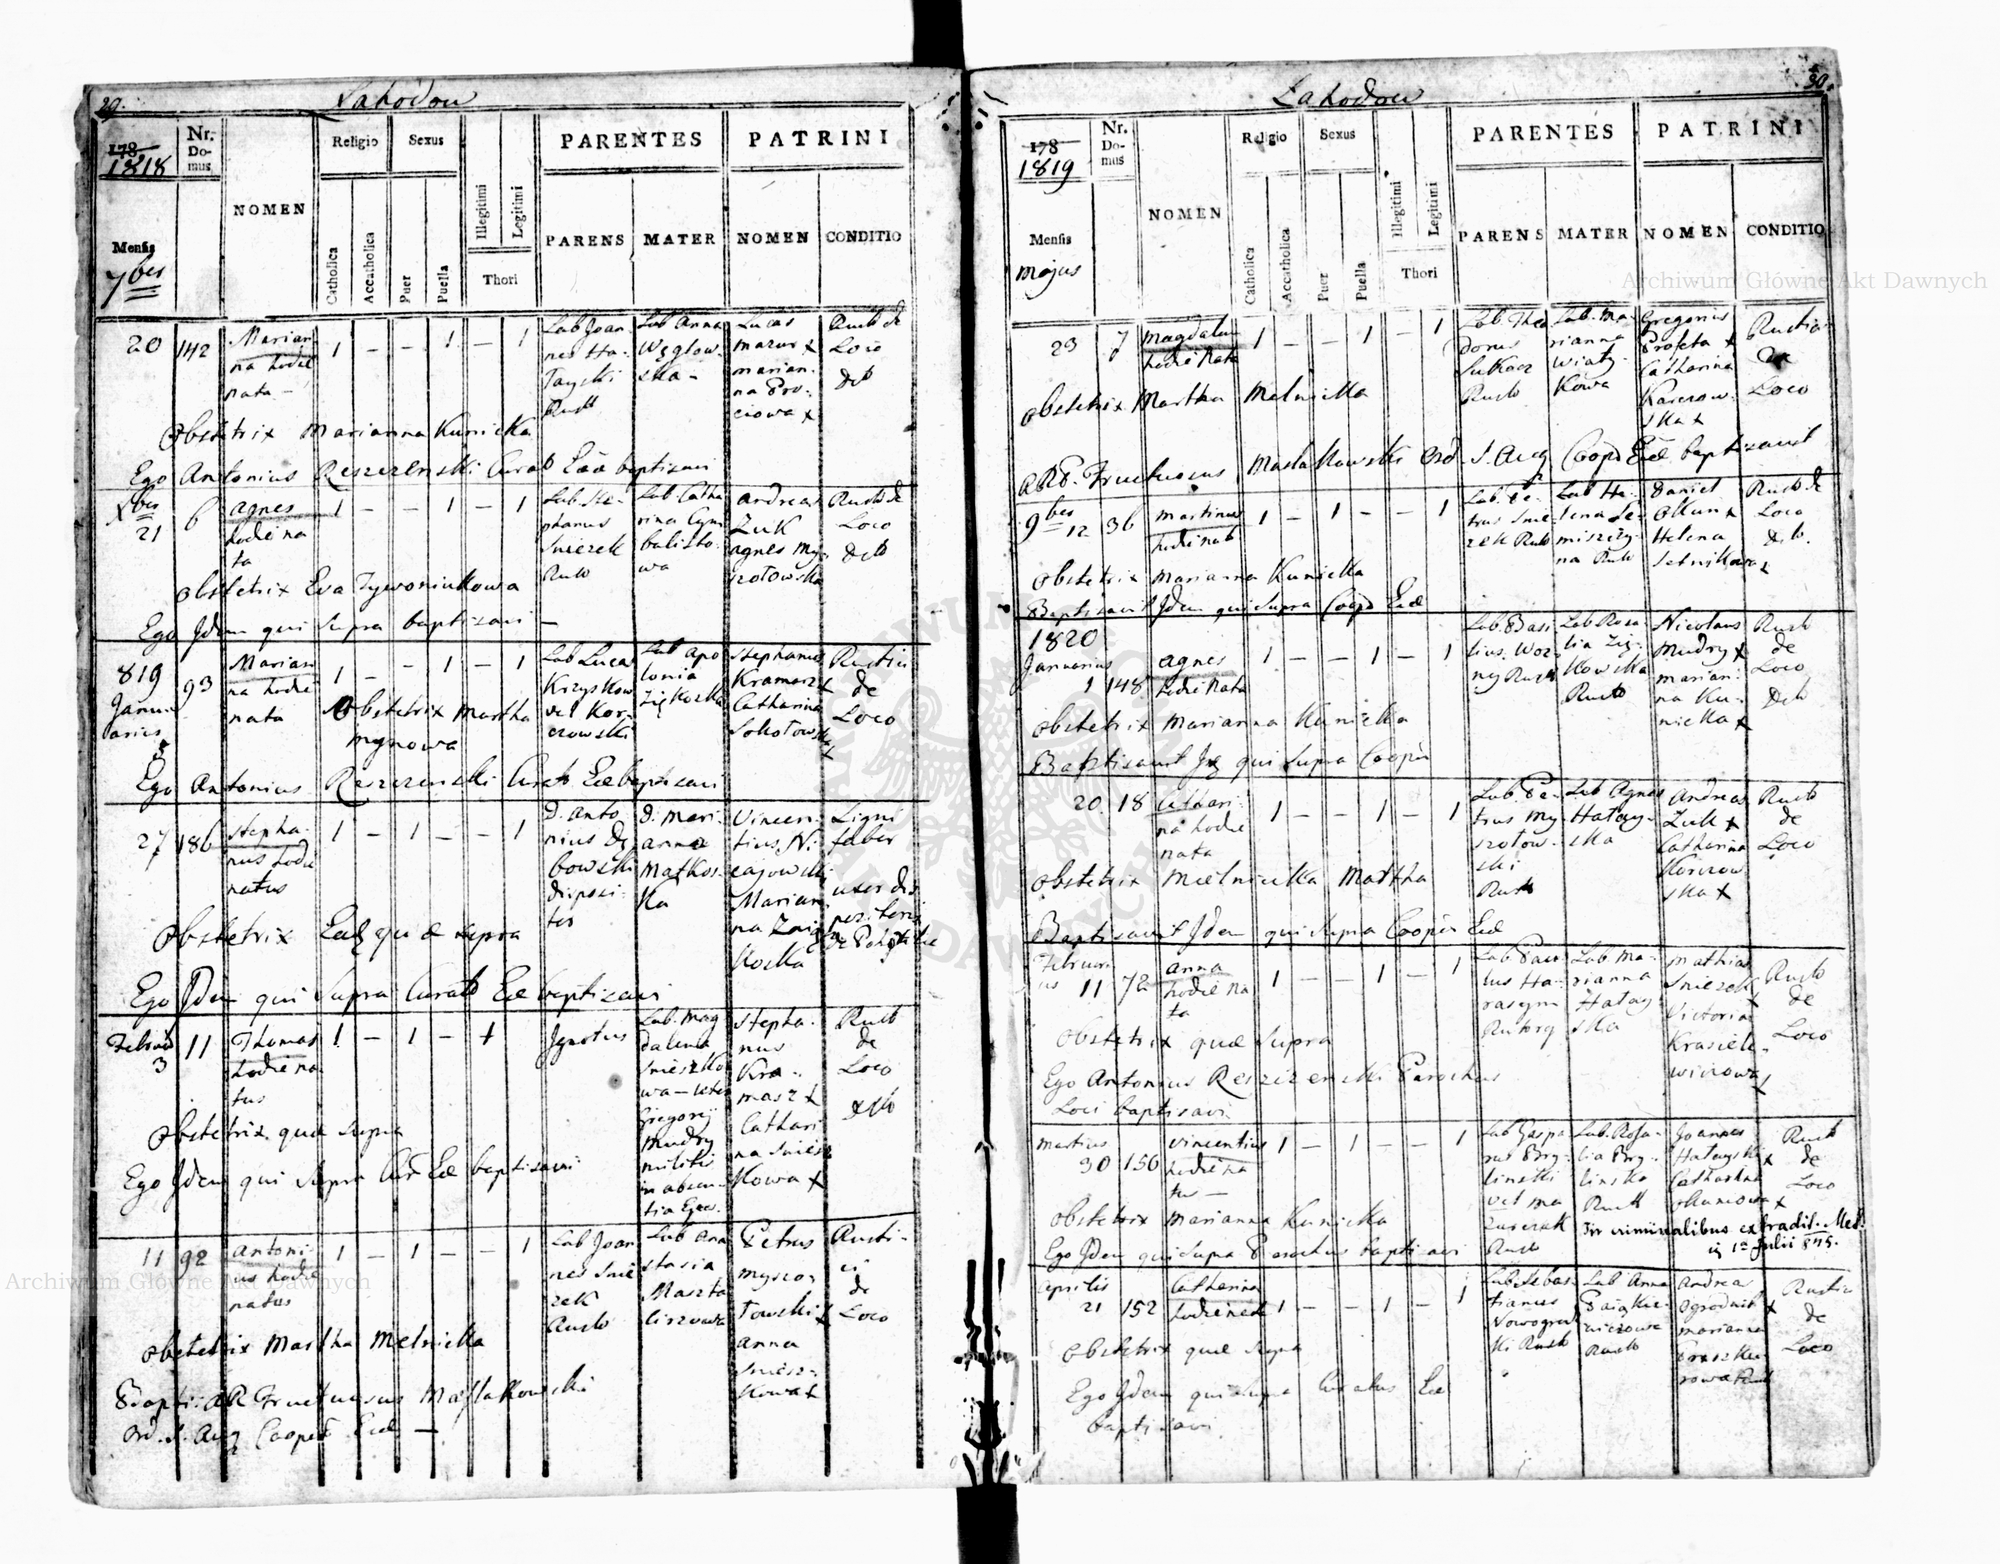 29.
Lahodow
178
1818
Nr.
Do-
mus
NOMEN
Religio
Sexus
PARENTES
PATRINI
Mensis
7bris
Catholica
Accatholica
Puer
Puella
Illegitimi
Legitimi
Thori
PARENS
MATER
NOMEN
CONDITIO
20
142
Marian
na hodie
nata —
1 — — 1 — 1
Lab Joan
nes Ha-
Rust
Lab Anna
Węglow
ska —
Lucas
mazur x
marian
na Pro-
ciowa x
Rust de
Loco
Obstetrix Marianna Kunicka
Ego Antonius Reszczenski Curat Eccl baptisavi
Xbris
21
6
agnes
hodie na
ta
1 — — 1 — 1
Lab. Ste-
phanus
Sniezek
Rust
Lab Catha
rina Cym
balisto-
wa
andreas
Zuk
agnes my-
szołowska
Rust de
Loco
Obstetrix Eva Zywoniukowa
Ego Idem qui Supra baptisavi —
819
Janu-
arius
93
Marian
na hodie
nata
1 — — 1 — 1
Lab Lucas
Krzyskow
vel Kor-
czowski
Lab Apo
lonia
Stephanus
Kramarz x
Catharina
Sokołowska
x
Rustici
de
Loco
Obstetrix Martha
mynowa
Ego Antonius Reszczenski Curat Eccl baptisavi
27
186
Stepha-
nus hodie
natus
1 — 1 — — 1
D. Anto
nius Dę
bowski
disposi-
tor
D. Mari-
anna
Matkos-
ka
Vincen-
tius Ni
cajowski
Marian
na
Ligni
faber
uxor dis
positoris
Obstetrix Eadę quæ supra
Ego Idem qui Supra Curat Eccl baptisavi
3
11
Thomas
hodie na
tus
1 — 1 — 1
Ignotus
Lab. Mag
dalena
Snieszko
wa — uxor
Gregorij
Mudry
militis
in absen-
tia
Stepha-
nus
Kra-
masz x
Cathari
na Snies
kowa x
Rust
de
Loco
Obstetrix quæ Supra
Ego Idem qui Supra Cur Eccl baptisavi
11
92
Antoni-
us hodie
natus
1 — 1 — — 1
Lab Joan
nes Snie
zek
Rust
Lab Ana
stasia
Maszta
lirzowa
Petrus
myszo-
łowski x
anna
Sniesz-
kowa x
Rusti-
ci
de
Loco
Obstetrix Martha Melnicka
Bapti: AR Fructuosus Maslakowski
Ord. S. Aug Cooper Eccl —
30.
Lahodow
178
1819
Nr.
Do-
mus
NOMEN
Religio
Sexus
PARENTES
PATRINI
Mensis
majus
Catholica
Accatholica
Puer
Puella
Illegitimi
Legitimi
Thori
PARENS
MATER
NOMEN
CONDITIO
23
7
magdalena
hodie Nata
1 — — 1 — 1
Lab. Theo
dorus
Sukacz
Rust
Lab. Ma-
rianna
Wiaty-
Kowa
Gregorius
Profeta x
Catharina
Karczow-
ska x
Rustici
de
Loco
Obstetrix Martha Melnicka
AR P. Fructuosus Maslakowski Ord. S. Aug Coop Eccl baptisavit
9bris
12
36
martinus
hodie nat
1 — 1 — — 1
Lab. Pe-
trus Snie-
zek Rust
Lab He-
lena Se-
na Rust
Daniel
Okun x
Helena
Setnikowa
x
Rust de
Loco
Obstetrix Marianna Kunicka
Baptisavit Idem qui Supra Coop Eccl
1820
Januarius
1
148
agnes
hodie Nata
1 — — 1 — 1
Lab. Basi
lius Woz-
ny Rust
Lab Rosa
lia Zię-
kowska
Rust
Nicolaus
Mudry x
marian-
na Ku-
nicka x
Rust
de
Loco
Obstetrix Marianna Kunicka
Baptisavit Idę qui Supra Cooper
20
18
Cathari-
na hodie
nata
1 — — 1 — 1
Lab. Pe-
trus My-
szołow-
ski
Rust
Lab Agnes
Hatay-
ska
Andreas
Zuk x
Catharina
Korczow
ska x
Rust
de
Loco
Obstetrix Mielnicka Martha
Baptisavit Idem qui Supra Cooper Eccl
Februari
us 11
72
anna
hodie na
ta
1 — — 1 — 1
Lab Pau
lus Ha-
rasym
Lab. Ma-
rianna
Hatay
ska
mathias
Sniezek
x
Victoria
Krasiele-
wiczowa
x
Rust
de
Loco
Obstetrix quæ Supra
Ego Antonius Reszczenski Parochus
Loci baptisavi
Martius
30
156
Vincentius
hodie na
tus —
1 — 1 — — 1
Lab Gaspa
rus Bry-
linski
vel ma
zurczak
Rust
Lab. Rosa-
lia Bry-
linska
Rust
Joannes
Hatayski
x
Catharina
okuniowa x
Rust
de
Loco
Obstetrix Marianna Kunicka
In criminalibus extradit. Met.
1a Julii 845.
Ego Idem qui Supra Parochus baptisavi
Aprilis
21
152
Catharina
hodie nata
1 — — 1 — 1
Lab Sebas-
tianus
Nowogrod
ki Rust
Lab Anna
Rust
Andreas
Ogrodnik
x
marianna
Rustici
de
Loco
Obstetrix quæ Supra
Ego Idem qui Supra Curatus Eccl
baptisavi
Archiwum Główne Akt Dawnych
Archiwum Główne Akt Dawnych
ARCHIWUM GŁÓWNE AKT DAWNYCH